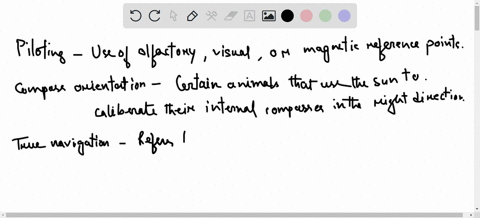 Piloting – Use of olfactory, visual, or magnetic reference points.
Compass orientation – Certain animals that use the sun to
calibrate their internal compasses in the right direction.
True navigation – Refers